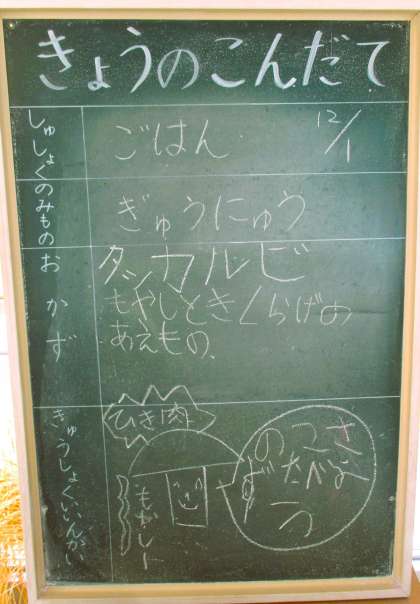 きょうのこんだて
しゅしょく
のみもの
おかず
きゅうしょくいいんかい
ごはん
12/1
ぎゅうにゅう
タッカルビ
もやしときくらげの
あえもの、
ひき肉
もやしー